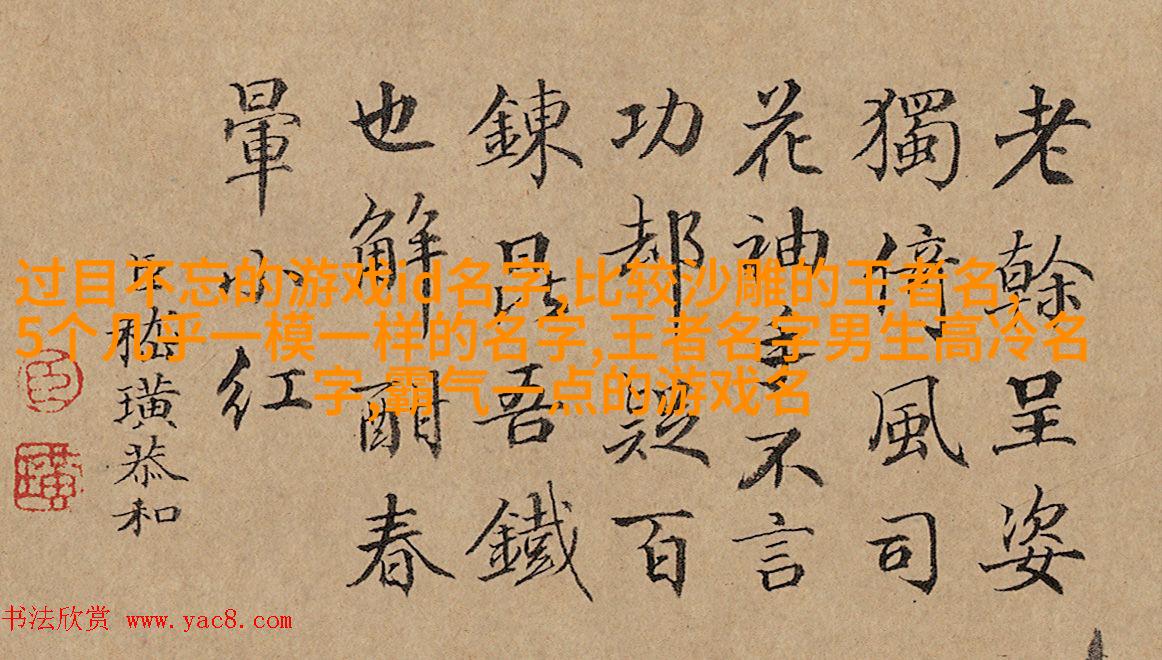 过目不忘的游戏id名字,比较沙雕的王者名,
5个几乎一模一样的名字,王者名字男生高冷名
字,霸气一点的游戏名
老榦呈姿
獨倚風司
花神主不言
功却疑百
鍊昆吾鐵
也解酣春
暈小紅
臣嵇璜恭和
臣
璜
书法欣赏 www.yac8.com